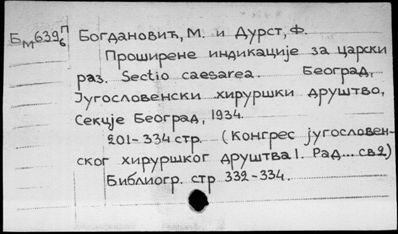 Бм639п6 Богдановић, М. и Дурст, Ф.
Проширене индикације за царски
раз. Sectio caesarea. Београд,
Југословенски хируршки друштво,
Секције Београд, 1934.
201-334 стр. (Конгрес југословен-
ског хируршког друштва I. Рад... св 2)
Библиогр. стр 332-334.